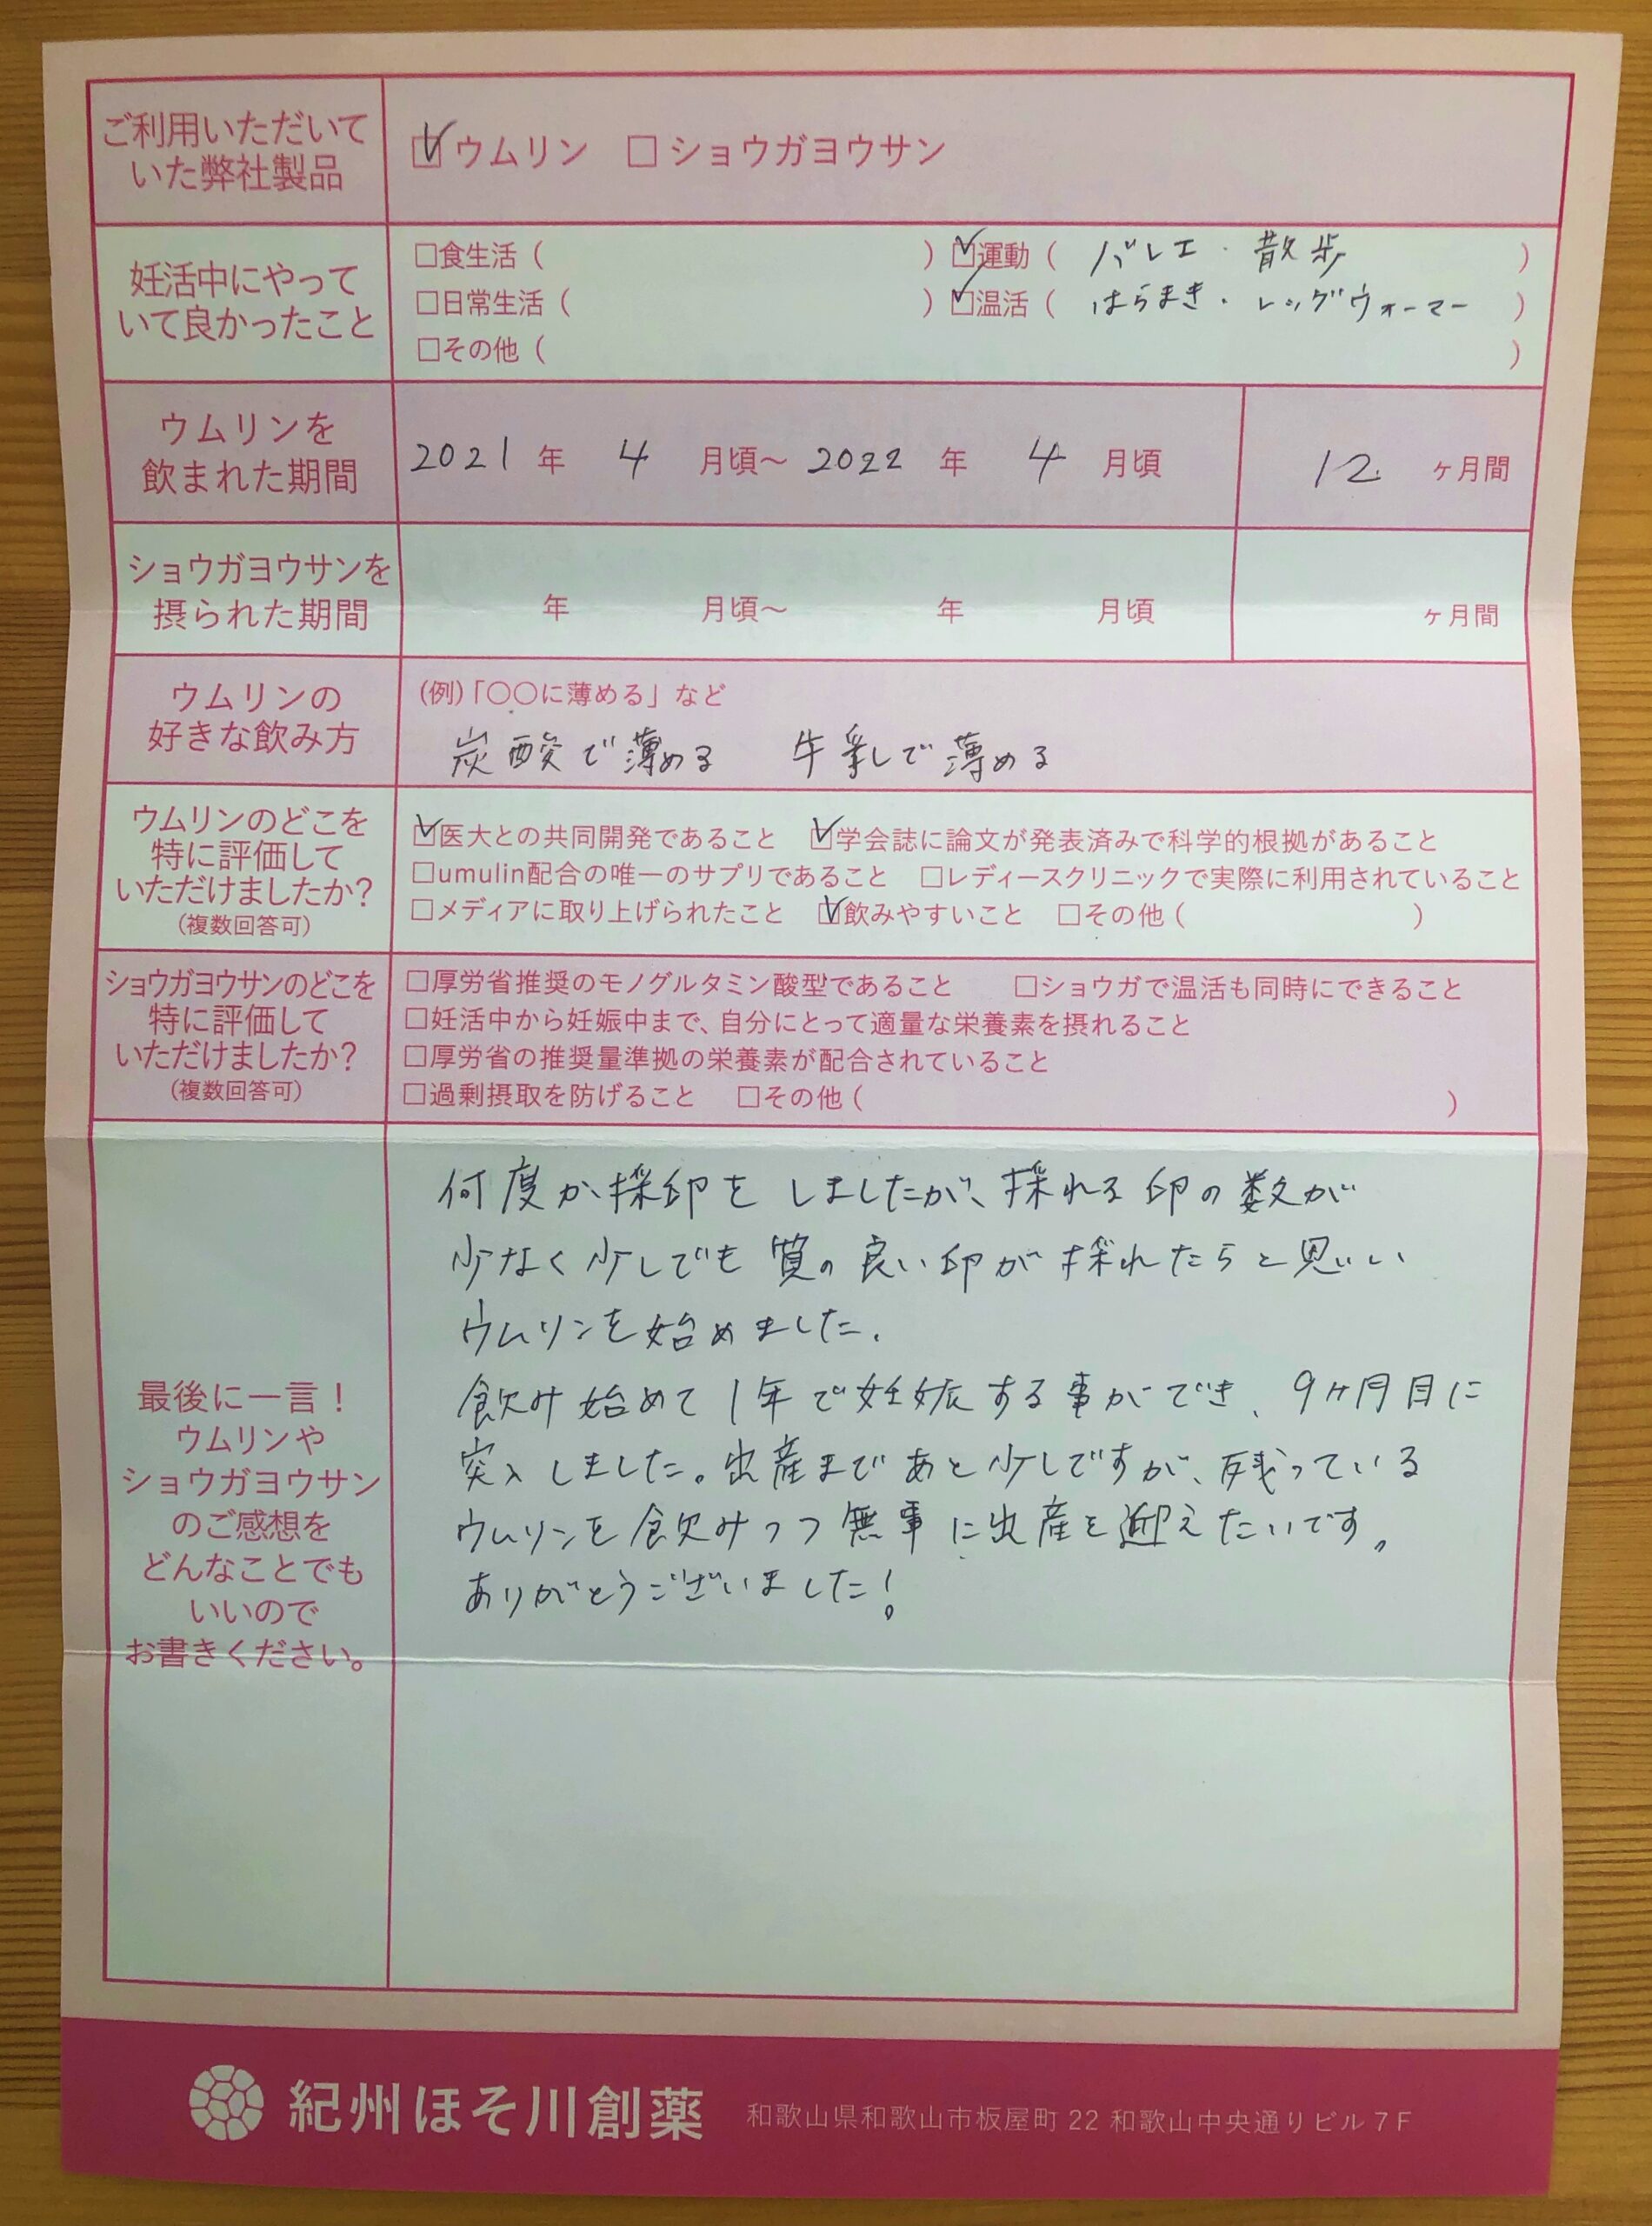 ご利用いただいて
いた弊社製品
☑ウムリン □ショウガヨウサン
妊活中にやって
いて良かったこと
□食生活( ) ☑運動( バレエ・散歩 )
□日常生活( ) ☑温活( はらまき・レッグウォーマー )
□その他( )
ウムリンを
飲まれた期間
2021 年 4 月頃～ 2022 年 4 月頃 12 ヶ月間
ショウガヨウサンを
摂られた期間
年 月頃～ 年 月頃 ヶ月間
ウムリンの
好きな飲み方
(例)「○○に薄める」など
炭酸で薄める 牛乳で薄める
ウムリンのどこを
特に評価して
いただけましたか?
(複数回答可)
☑医大との共同開発であること ☑学会誌に論文が発表済みで科学的根拠があること
□umulin配合の唯一のサプリであること □レディースクリニックで実際に利用されていること
□メディアに取り上げられたこと ☑飲みやすいこと □その他( )
ショウガヨウサンのどこを
特に評価して
いただけましたか?
(複数回答可)
□厚労省推奨のモノグルタミン酸型であること □ショウガで温活も同時にできること
□妊活中から妊娠中まで、自分にとって適量な栄養素を摂れること
□厚労省の推奨量準拠の栄養素が配合されていること
□過剰摂取を防げること □その他( )
最後に一言!
ウムリンや
ショウガヨウサン
のご感想を
どんなことでも
いいので
お書きください。
何度か採卵をしましたが、採れる卵の数が
少なく少しでも質の良い卵が採れたらと思い
ウムリンを始めました。
飲み始めて1年で妊娠する事ができ、9ヶ月目に
突入しました。出産まであと少しですが、残っている
ウムリンを飲みつつ無事に出産を迎えたいです。
ありがとうございました!
紀州ほそ川創薬 和歌山県和歌山市板屋町 22 和歌山中央通りビル 7F